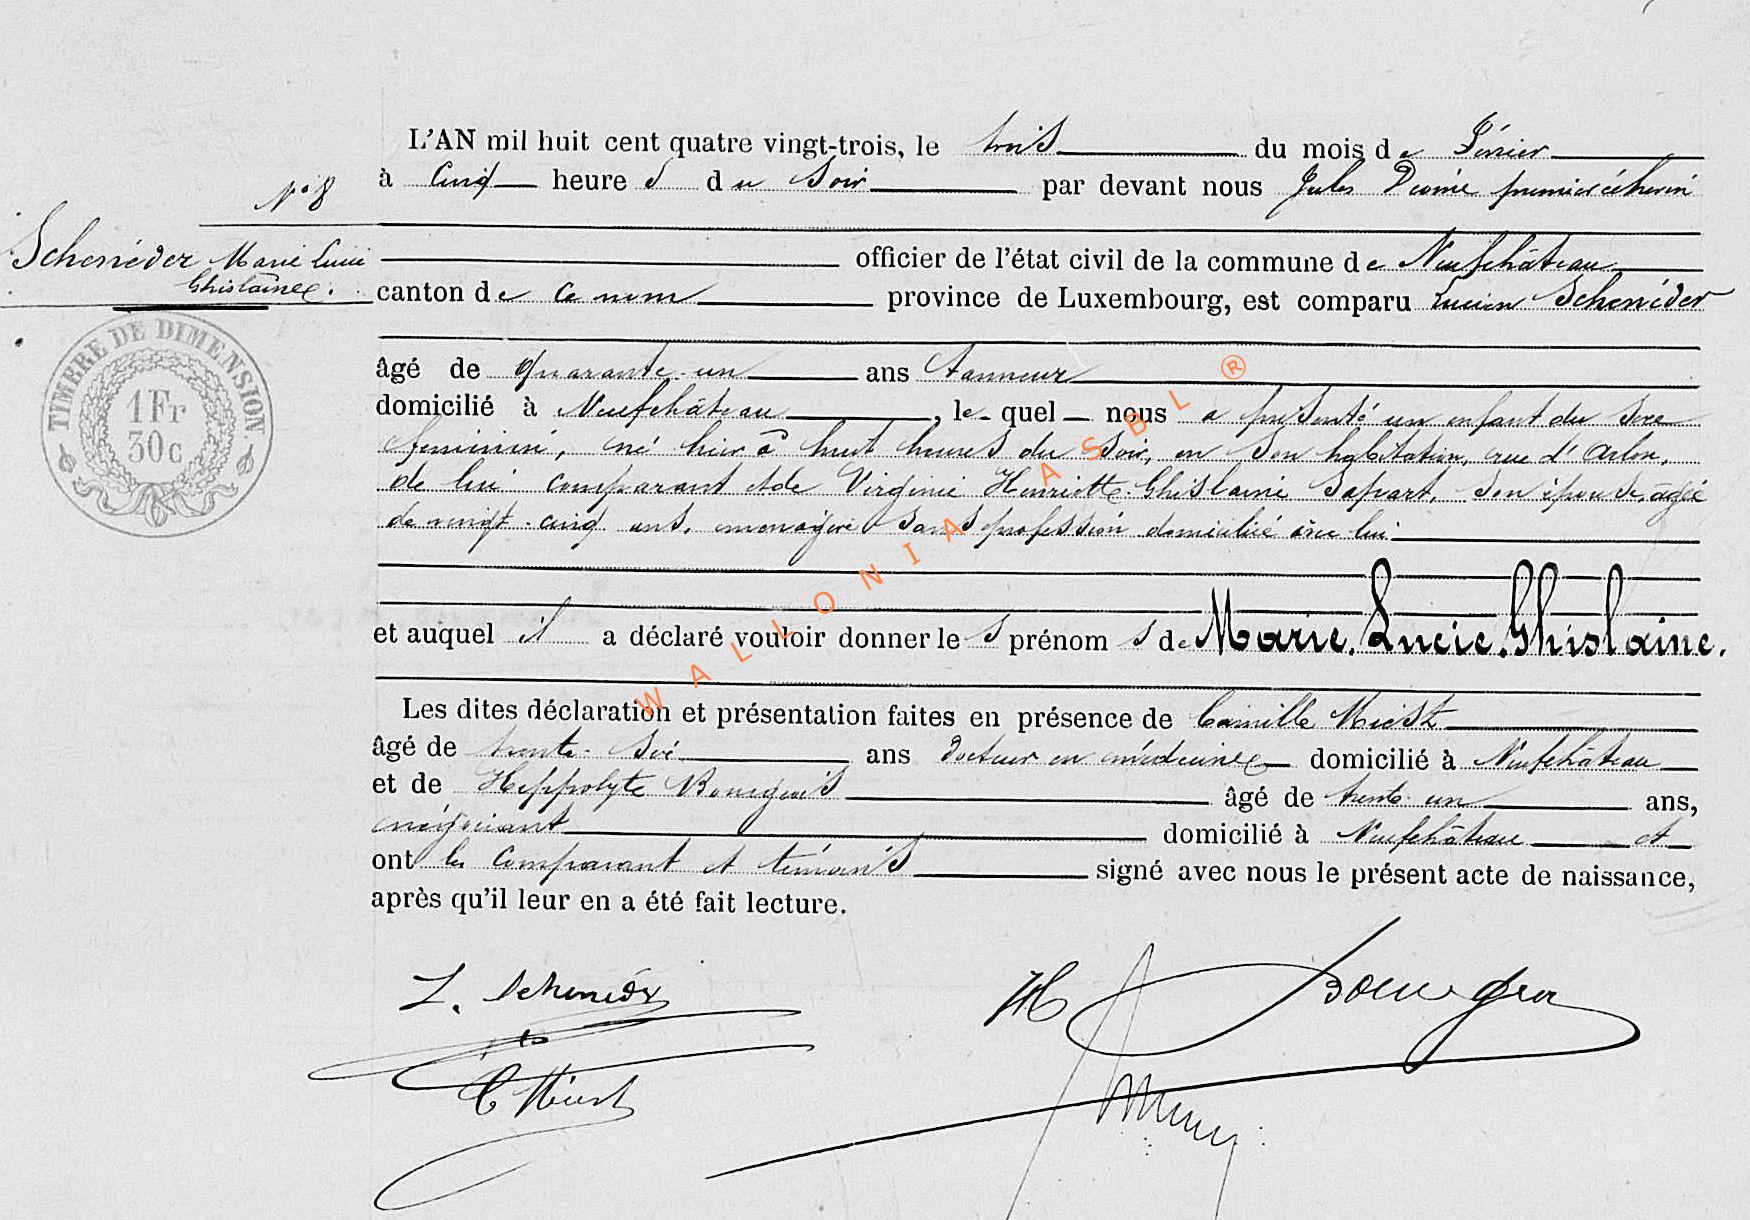 L'AN mil huit cent quatre vingt-trois, le trois du mois de Février
à cinq heures du soir par devant nous Jules premier échevin
N° 8
officier de l'état civil de la commune de Neufchâteau
Scheneider Marie Lucie
Ghislaine.
canton de ce nom province de Luxembourg, est comparu Lucien Scheneider
TIMBRE DE DIMENSION.
1 Fr
30 c
âgé de quarante-un ans tanneur
domicilié à Neufchâteau, lequel nous a présenté un enfant du sexe
féminin, né hier à huit heures du soir, en son habitation, rue d'Arlon,
de lui comparant et de Virginie Henriette Ghislaine Sapart, son épouse, âgée
de vingt-cinq ans, ménagère sans profession domiciliée avec lui
et auquel il a déclaré vouloir donner les prénoms de Marie. Lucie. Ghislaine.
Les dites déclaration et présentation faites en présence de Camille
âgé de trente-six ans docteur en médecine domicilié à Neufchâteau
et de Hippolyte Bourgeois âgé de trente-un ans,
négociant domicilié à Neufchâteau et
ont les comparant et témoins signé avec nous le présent acte de naissance,
après qu'il leur en a été fait lecture.
L. Scheneider
H Bourgeois
WALLONIA ASBL ®